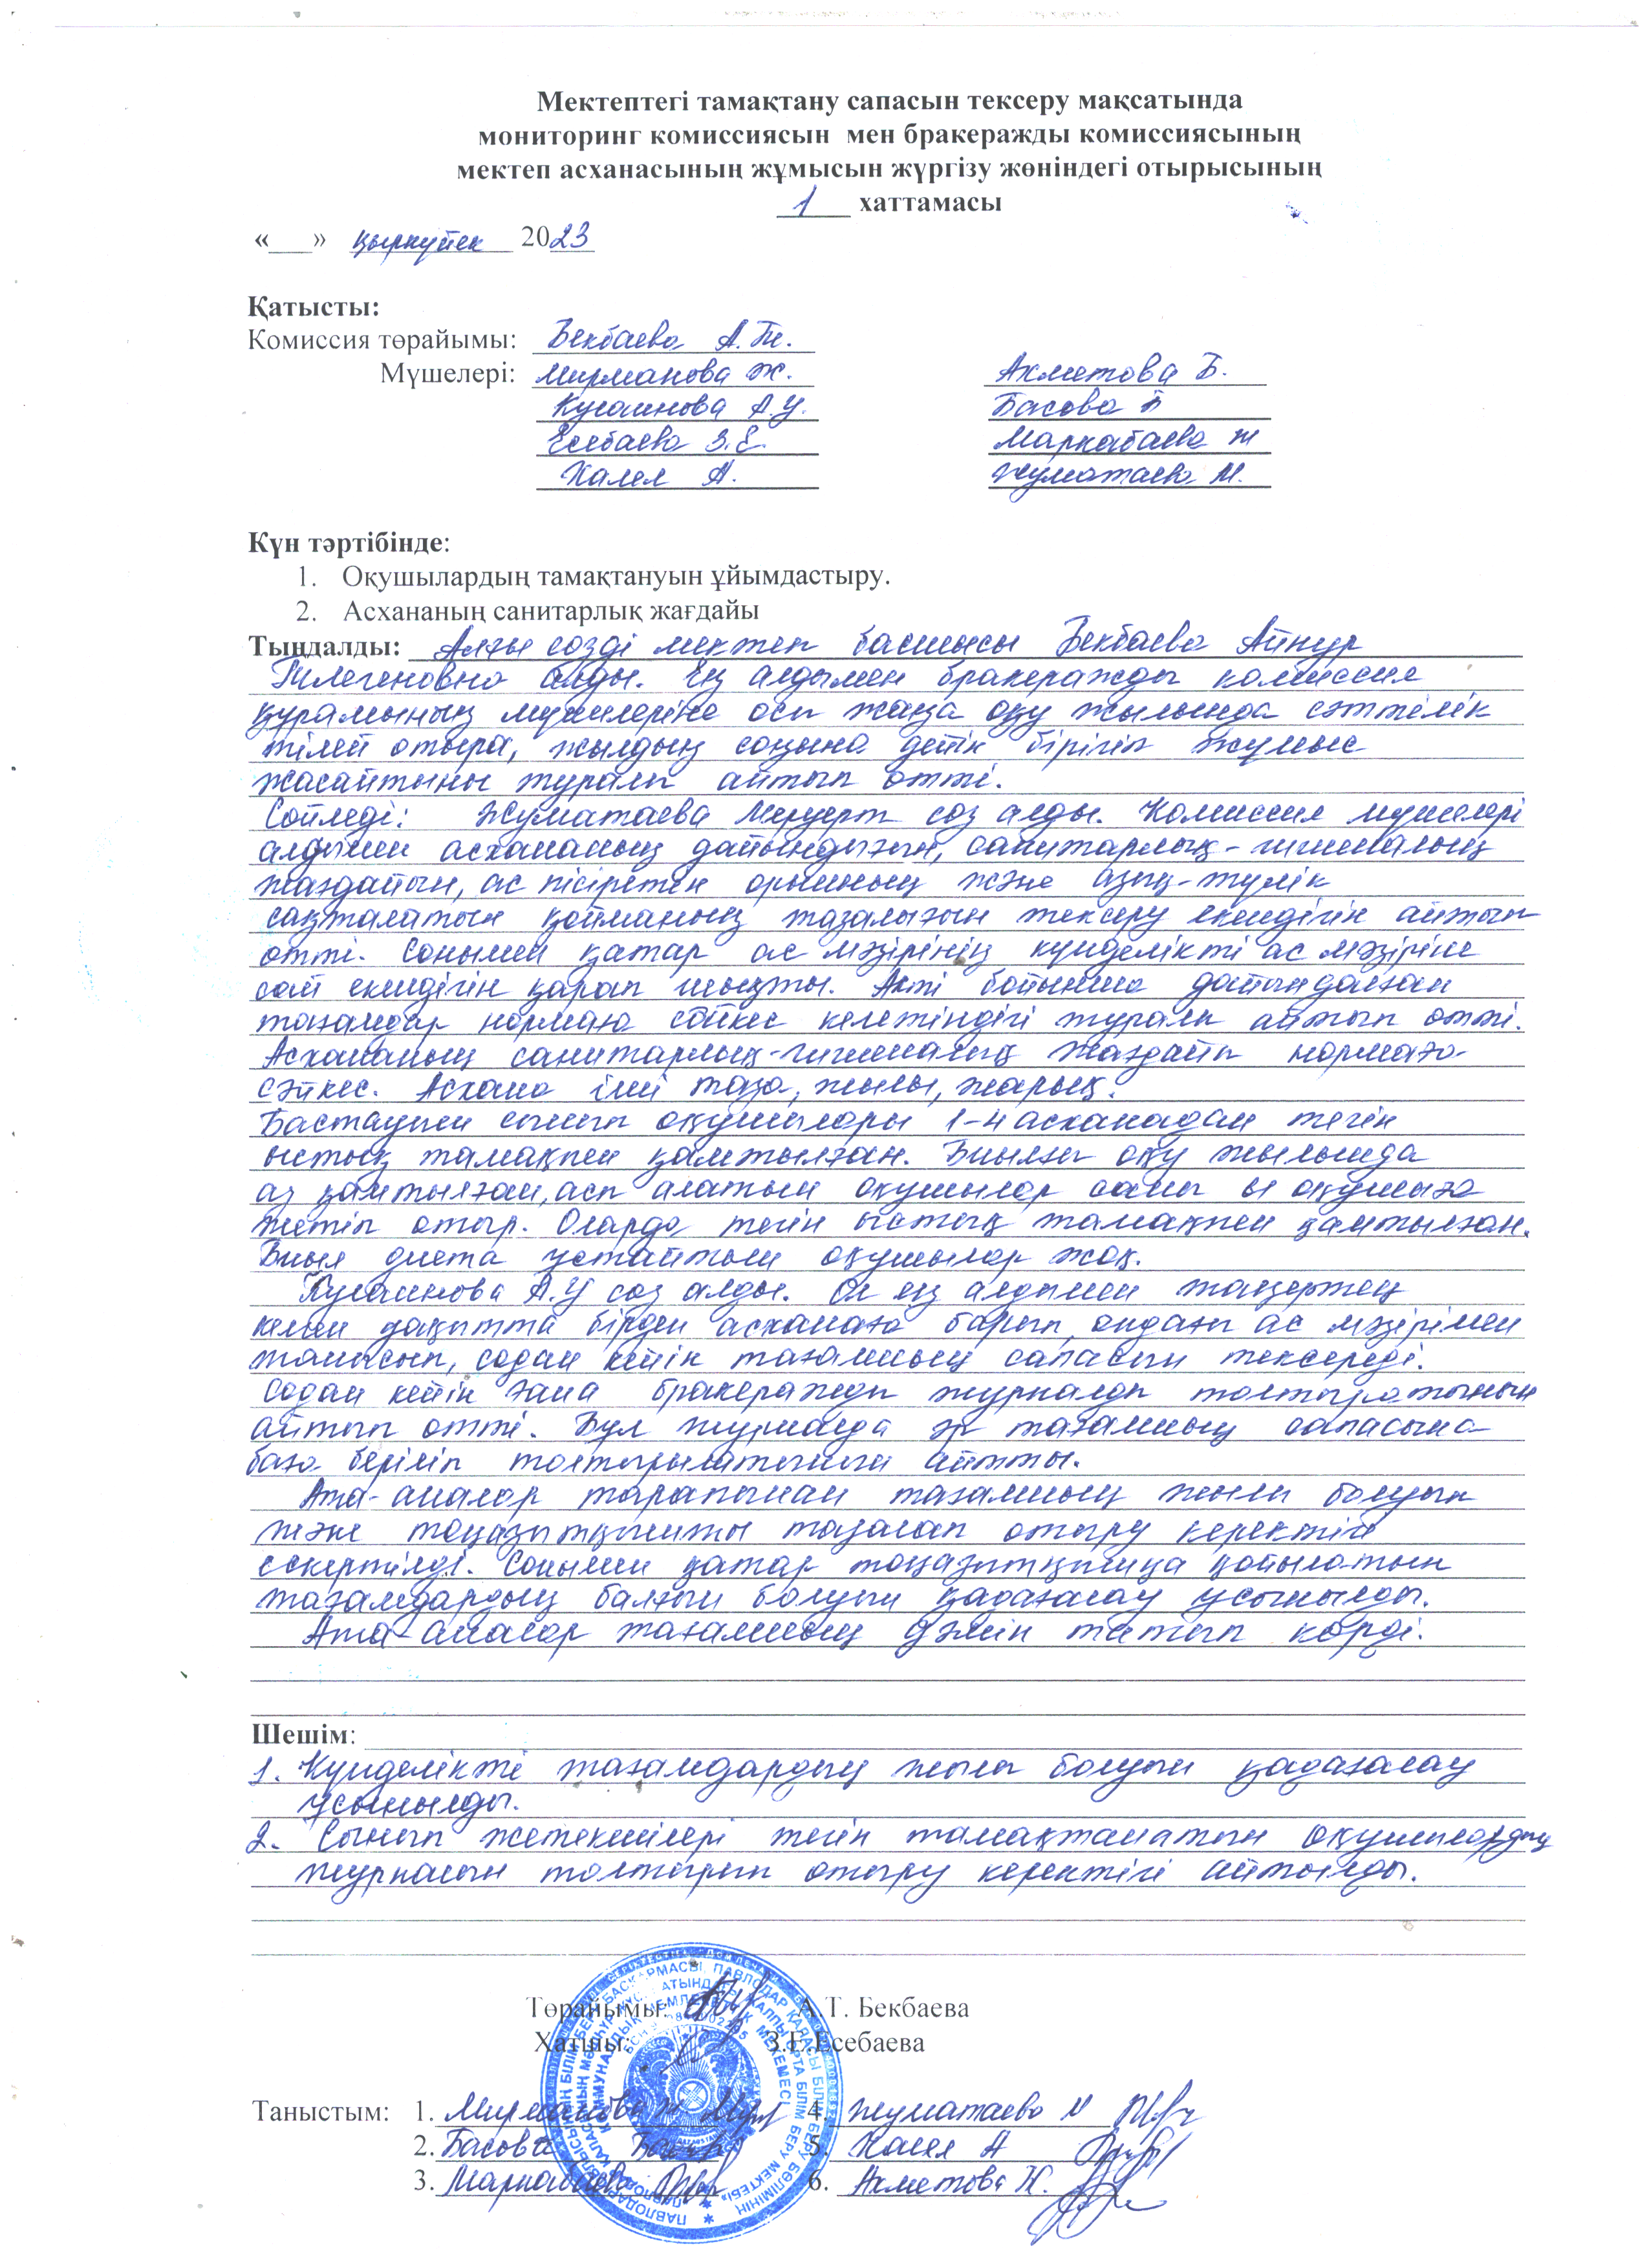 Мектептегі тамақтану сапасын тексеру мақсатында
мониторинг комиссиясын мен бракеражды комиссиясының
мектеп асханасының жұмысын жүргізу жөніндегі отырысының
1 хаттамасы
«___» қыркүйек 2023
Қатысты:
Комиссия төрайымы: Бекбаева А.Т.
Мүшелері: Мирманова Ж. Ахметова Б.
Кусаинова А.У. Басова Б
Есебаева З.Е. Маркабаева Ж
Халел А. Жуматаева М.
Күн тәртібінде:
1. Оқушылардың тамақтануын ұйымдастыру.
2. Асхананың санитарлық жағдайы
Тыңдалды: Алғы сөзді мектеп басшысы Бекбаева Айнур
Тлегеновна алды. Ең алдымен бракеражды комиссия
құрамының мүшелеріне осы жаңа оқу жылында сәттілік
тілей отыра, жылдың соңына дейік бірігіп жұмыс
жасайтыны туралы айтып өтті.
Сөйледі: Жуматаева Меруерт сөз алды. Комиссия мүшелері
алдымен асхананың дайындығын, санитарлық-гигиналық
жағдайын, ас пісіретін орынның және азық-түлік
сақталатын қойманың тазалығын тексеру екендігін айтып
өтті. Сонымен қатар ас мәзірінің күнделікті ас мәзіріне
сай екендігін қарап шықты. Акті бойынша дайындалған
тағамдар нормаға сәйкес келетіндігі туралы айтып өтті.
Асхананың санитарлық-гигиналық жағдайы нормаға
сәйкес. Асхана іші таза, жылы, жарық.
Бастауыш сынып оқушылары 1-4 асханадан тегін
ыстық тамақпен қамтылған. Биылғы оқу жылында
аз қамтылған, асп алатын оқушылар саны оқушыға
жетіп отыр. Оларда тегін ыстық тамақпен қамтылған.
Биыл диета ұстайтын оқушылар жоқ.
Кусаинова А.У сөз алды. Ол ең алдымен таңертең
келген уақытта бірден асханаға барып, ондағы ас мәзірімен
танысып, содан кейін тағамның сапасын тексереді.
Содан кейін ғана бракеражды журналды толтыратынын
айтып өтті. Бұл журналда әр тағамның сапасына
баға беріліп толтырылатынын айтты.
Ата-аналар тарапынан тағамның жылы болуын
және тоңазытқышты тазалап отыру керектігі
ескертілді. Сонымен қатар тоңазытқышқа қойылатын
тағамдардың балғын болуын қадағалау ұсынылды.
Ата-аналар тағамның дәмін татып көрді.
Шешім:
1. Күнделікті тағамдардың жылы болуын қадағалау
ұсынылды.
2. Сынып жетекшілері тегін тамақтанатын оқушылардың
журналын толтырып отыру керектігі айтылды.
Төрайымы: А.Т. Бекбаева
Хатшы: З.Е.Есебаева
Таныстым: 1. Мирманова Ж 4. Жуматаева М
2. Басова 5. Халел А
3. Маркабаева 6. Ахметова К.